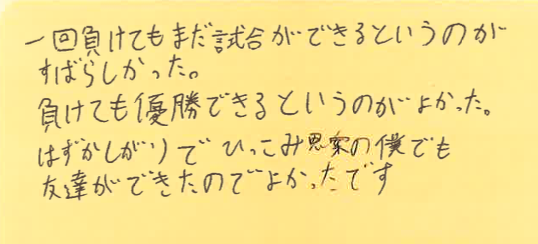 一回負けてもまだ試合ができるというのが
すばらしかった。
負けても優勝できるというのがよかった。
はずかしがりでひっこみ思案の僕でも
友達ができたのでよかったです